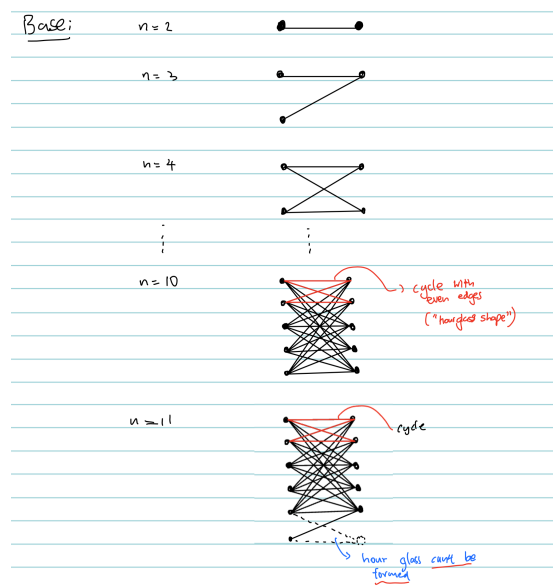 Base:
n = 2
n = 3
n = 4
n = 10
cycle with
even edges
("hourglass shape")
n = 11
cycle
hour glass can't be
formed